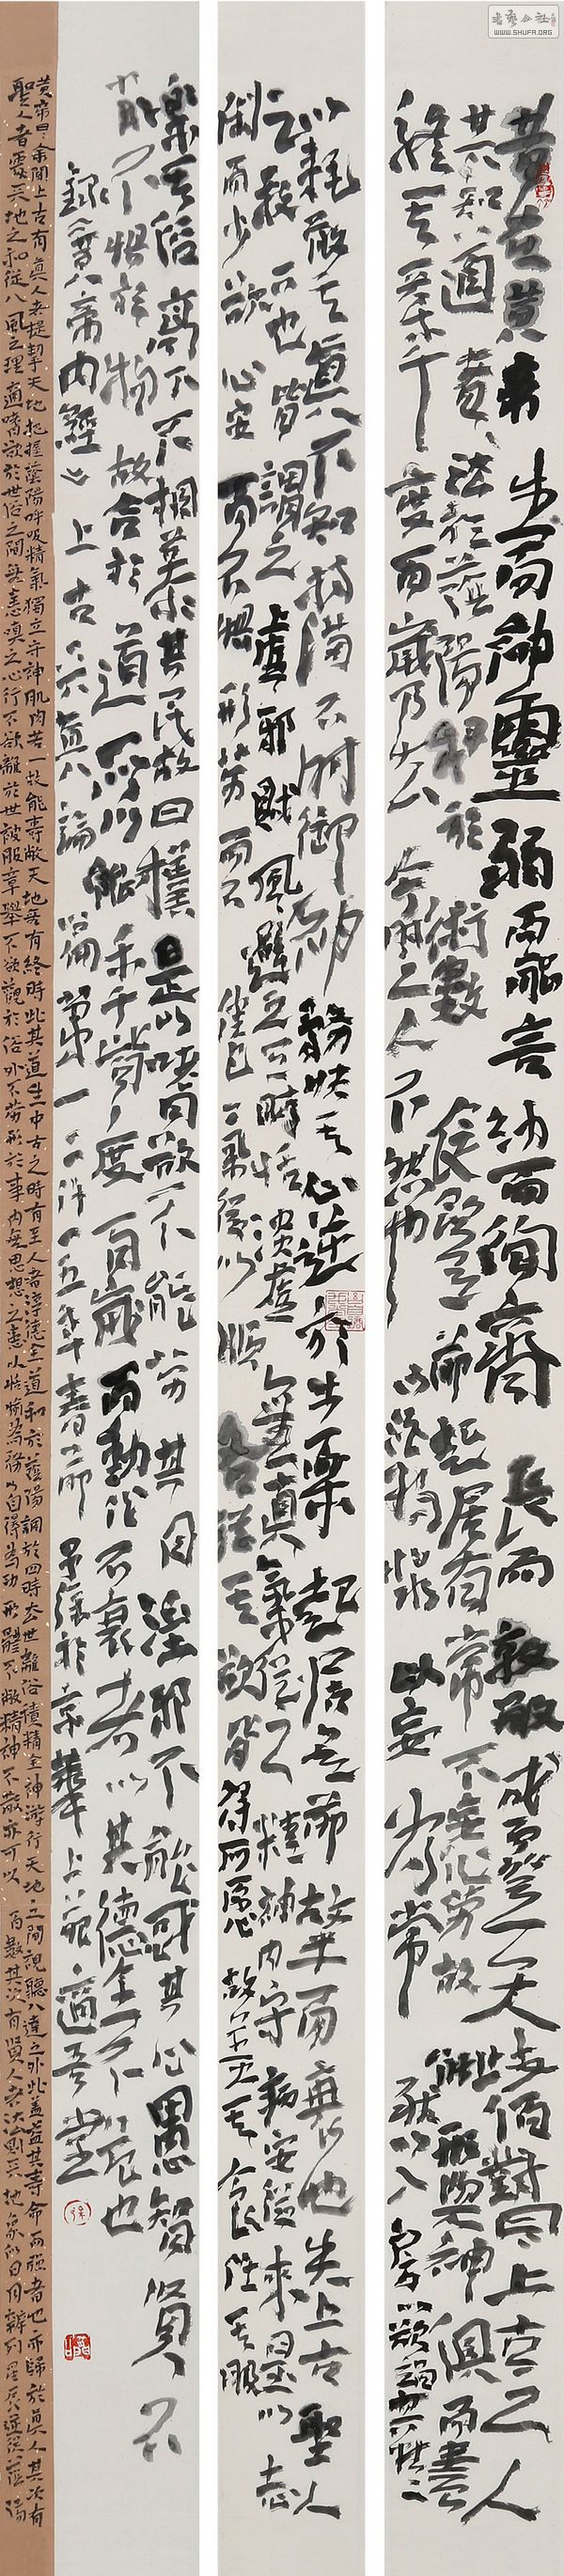 昔在黃帝生而神靈弱而能言幼而徇齊長而敦敏成而登天岐伯對曰上古之人
其知道者法於陰陽和於術數食飲有節起居有常不妄作勞故能形與神俱而盡
終其天年度百歲乃去今時之人不然也以酒為漿以妄為常醉以入房以欲竭其精
以耗散其真不知持滿不時御神務快其心逆於生樂起居無節故半而衰也夫上古聖人
之教下也皆謂之虛邪賊風避之有時恬淡虛無真氣從之精神內守病安從來是以志
閑而少欲心安而不懼形勞而不倦氣從以順各從其欲皆得所願故美其食任其服
樂其俗高下不相慕其民故曰樸是以嗜欲不能勞其目淫邪不能惑其心愚智賢不
肖不懼於物故合於道所以能年皆度百歲而動作不衰者以其德全不危也
錄黃帝內經之上古天真論篇第一二〇一五年春節於京華上苑適吾堂
黃帝曰余聞上古有真人者提挈天地把握陰陽呼吸精氣獨立守神肌肉若一故能壽敝天地無有終時此其道生中古之時有至人者淳德全道和於陰陽調於四時去世離俗積精全神游行天地之間視聽八達之外此蓋益其壽命而強者也亦歸於真人其次有
聖人者處天地之和從八風之理適嗜欲於世俗之間無恚嗔之心行不欲離於世被服章舉不欲觀於俗外不勞形於事內無思想之患以恬愉為務以自得為功形體不敝精神不散亦可以百數其次有賢人者法則天地象似日月辨列星辰逆從陰陽
WWW.SHUFA.ORG